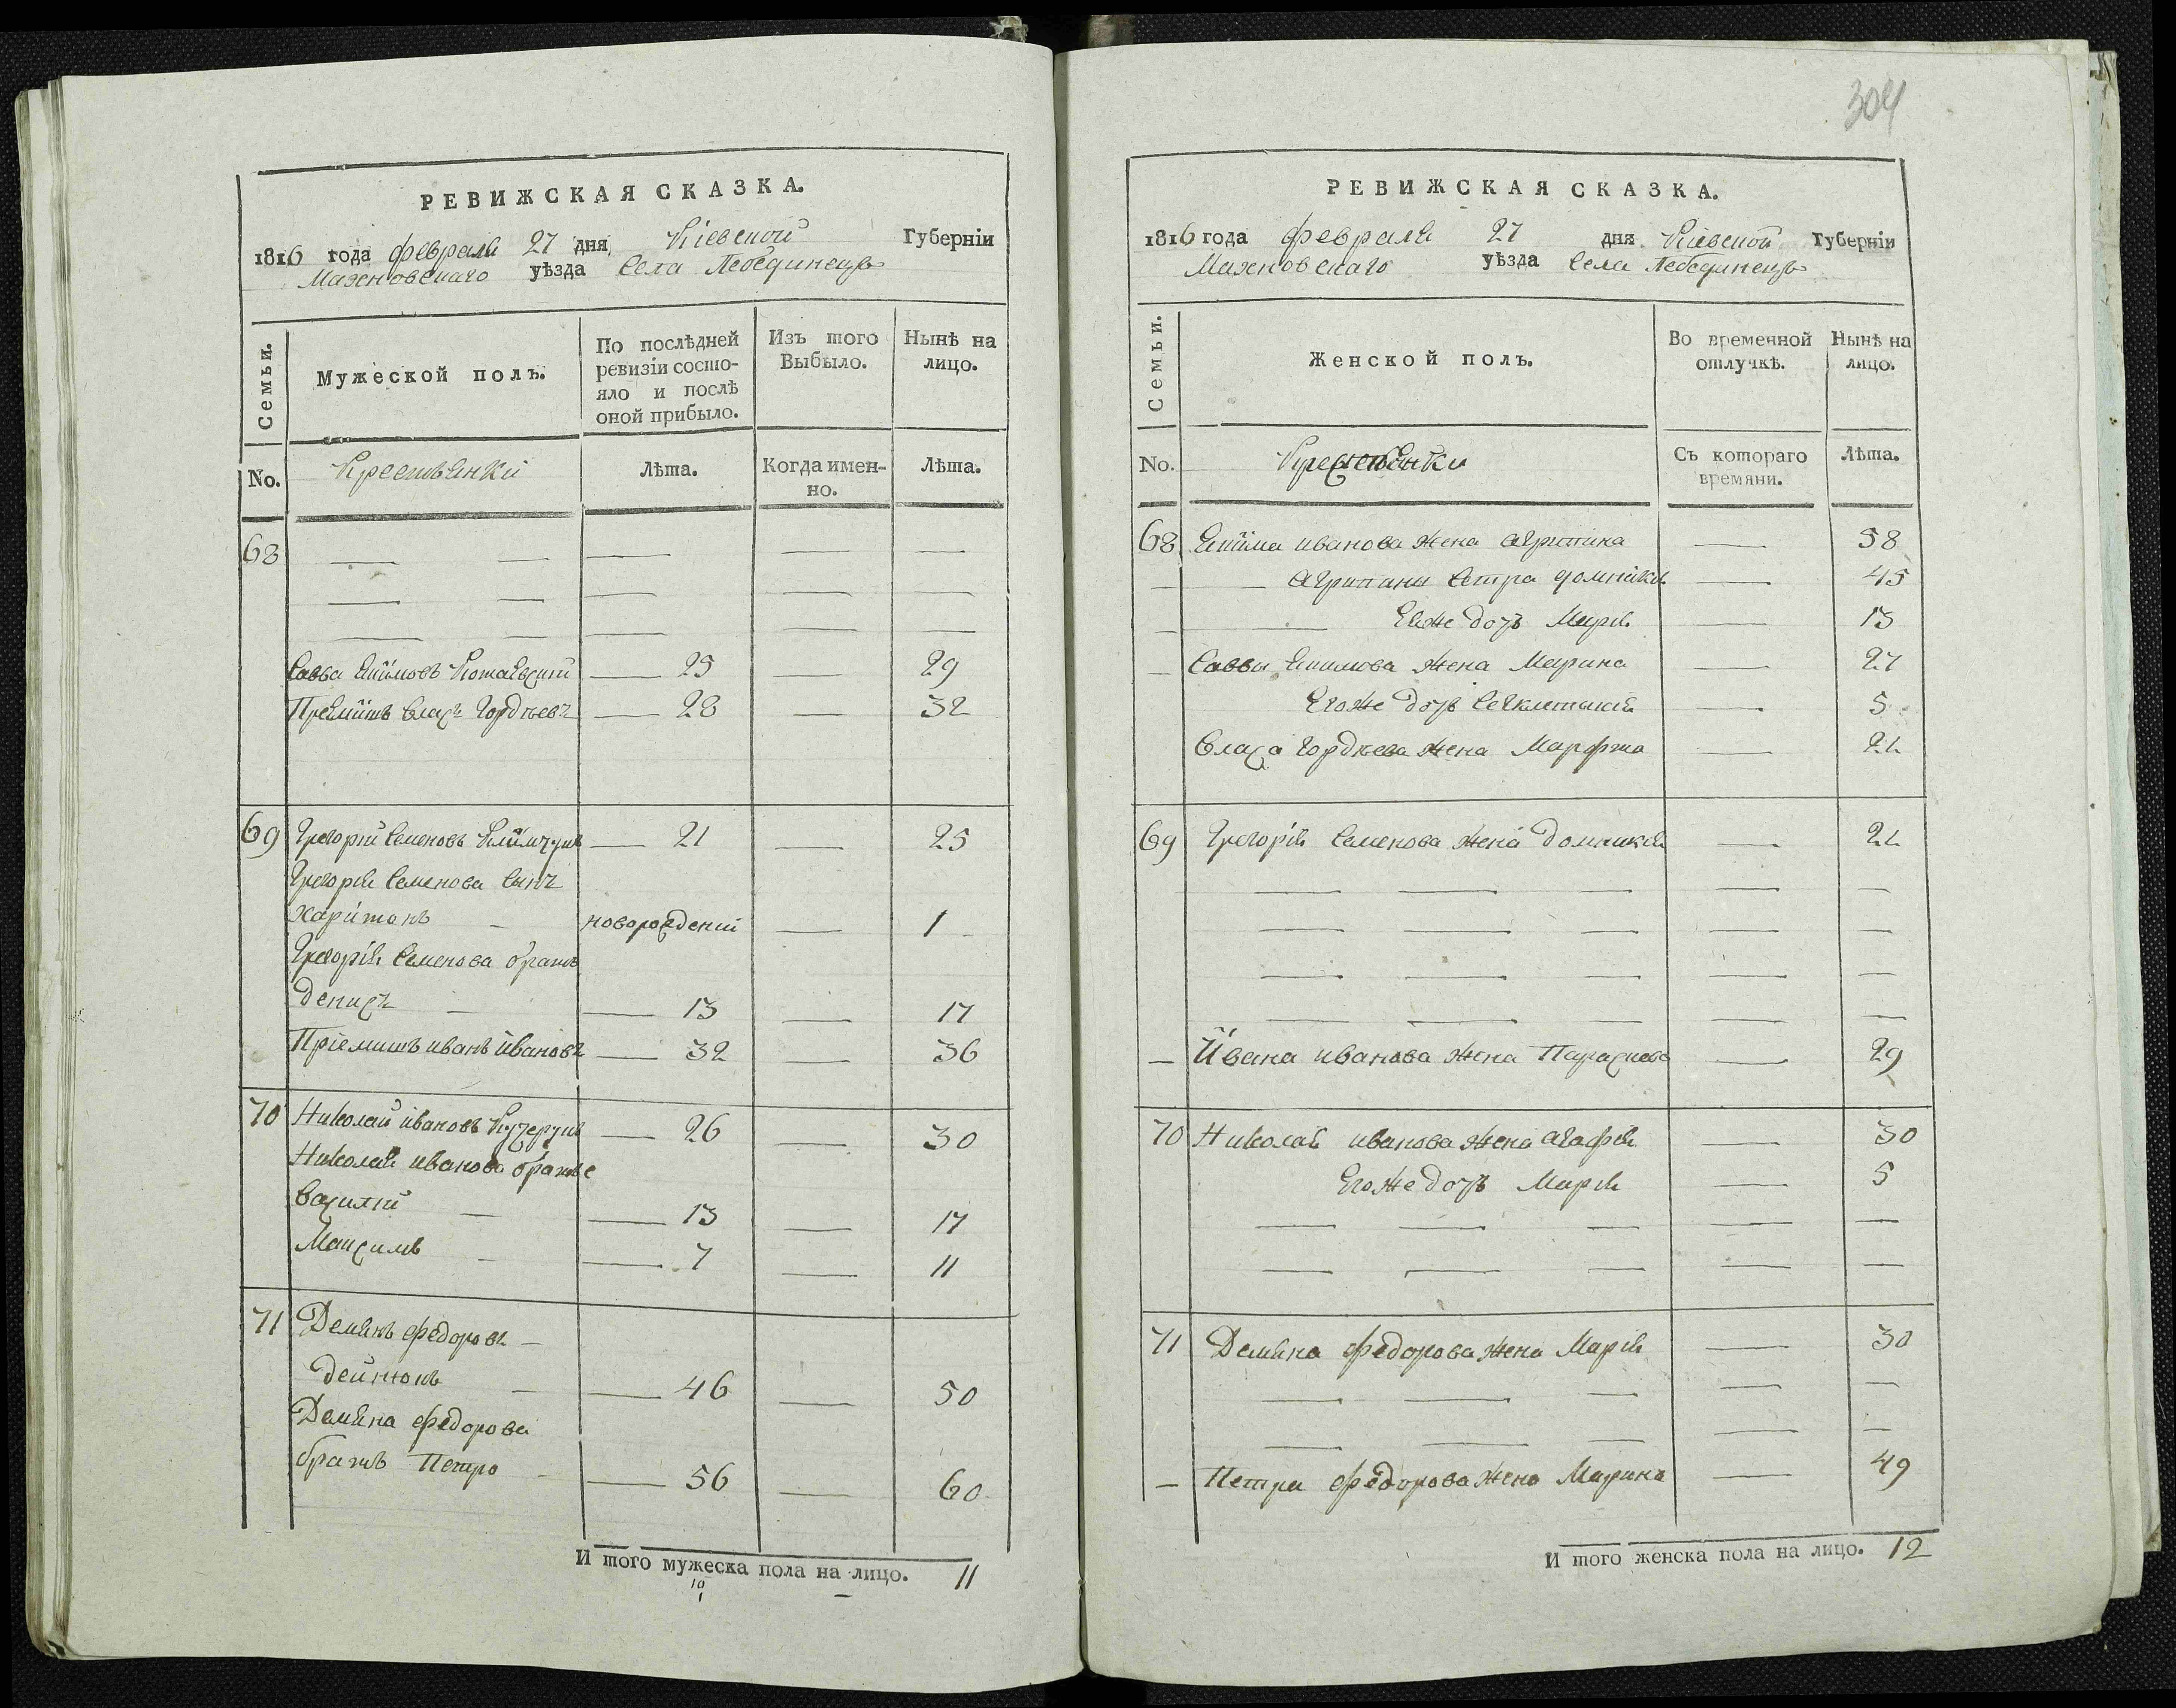 РЕВИЖСКАЯ СКАЗКА.
1816 года февраля 27 дня Кіевской Губерніи
Махновскаго уѣзда Села Лебединецъ
Семьи.
Мужеской полъ.
По послѣдней ревизіи состо-
яло и послѣ
оной прибыло.
Изъ того
Выбыло.
Нынѣ на
лицо.
No.
Лѣта.
Когда имен-
но.
Лѣта.
68 — — — — —
— — — — —
— — — — —
Савва Якимовъ — 25 — 29
Приімышъ Власъ Гордѣевъ — 28 — 32
69 Григорій Семеновъ Климчукъ — 21 — 25
Григорія Семенова Сынъ
Харитонъ — новорожденій — 1
Григорія Семенова братъ
Денисъ — — 13 — 17
Пріемышъ иванъ ивановъ — 32 — 36
70 Николай ивановъ Кучерукъ — 26 — 30
Николая иванова братья
василій — — 13 — 17
Максимъ — — 7 — 11
71 Демянъ Федоровъ —
Дейнюкъ — — 46 — 50
Демяна Федорова
братъ Петро — — 56 — 60
И того мужеска пола на лицо. 11
304
РЕВИЖСКАЯ СКАЗКА.
1816 года февраля 27 дня Кіевской Губерніи
Махновскаго уѣзда Села Лебединецъ
Семьи.
Женской полъ.
Во временной
отлучкѣ.
Нынѣ на
лицо.
No.
Крестьянки
Съ котораго
времяни.
Лѣта.
68 Якима иванова жена агрипина — 58
— — Агрипины Сестра домникія — 45
— — Еяже дочъ Марія — 13
— Саввы Якимова жена Марина — 27
Егоже дочъ — 5
Власа Гордѣева жена Марфта — 22
69 Григорія Семенова жена Домникія — 22
— — — — —
— — — — —
— — — — —
— — — — —
— Ивана иванова жена Параскева — 29
70 Николая иванова жена агафія — 30
Егоже дочъ Марія — 5
— — — — —
— — — — —
71 Демяна Федорова жена Марія — 30
— — — — —
— — — — —
— Петра Федорова жена Марина — 49
И того женска пола на лицо. 12